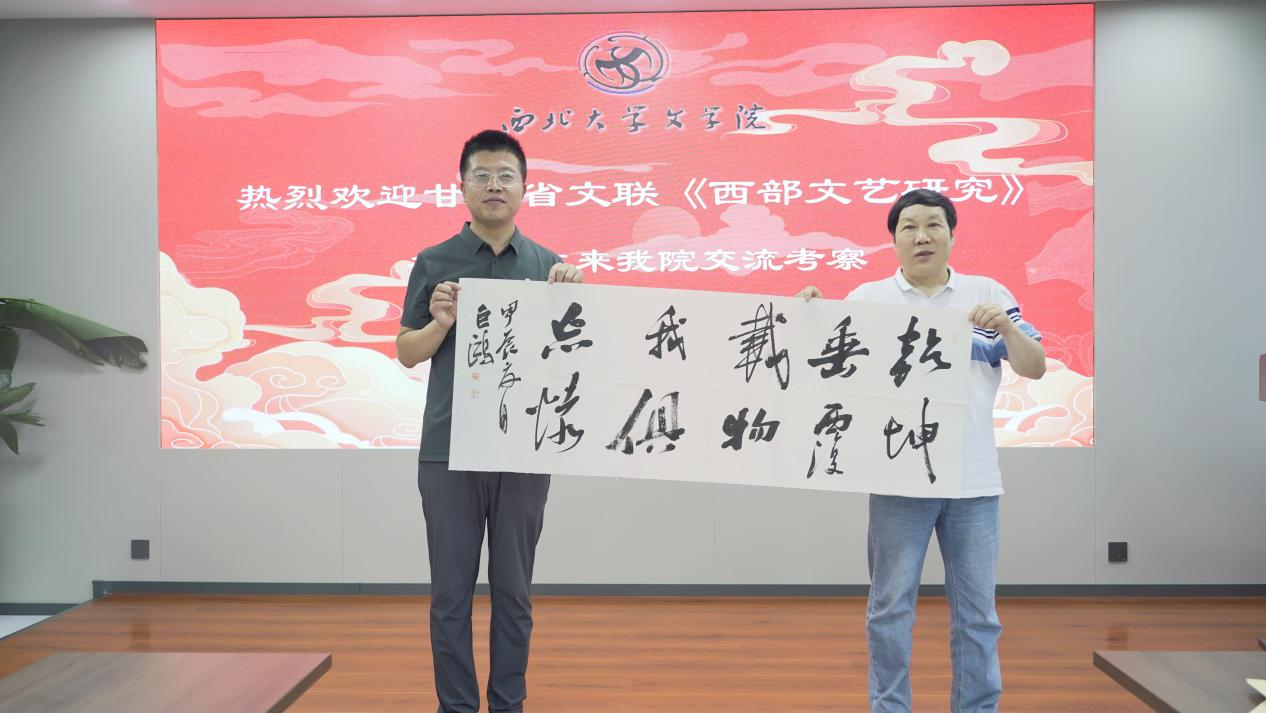 西北大学文学院
热烈欢迎甘 省文联《西部文艺研究》
来我院交流考察
乾坤
垂覆
載物
我俱
忘懷
甲辰夏月